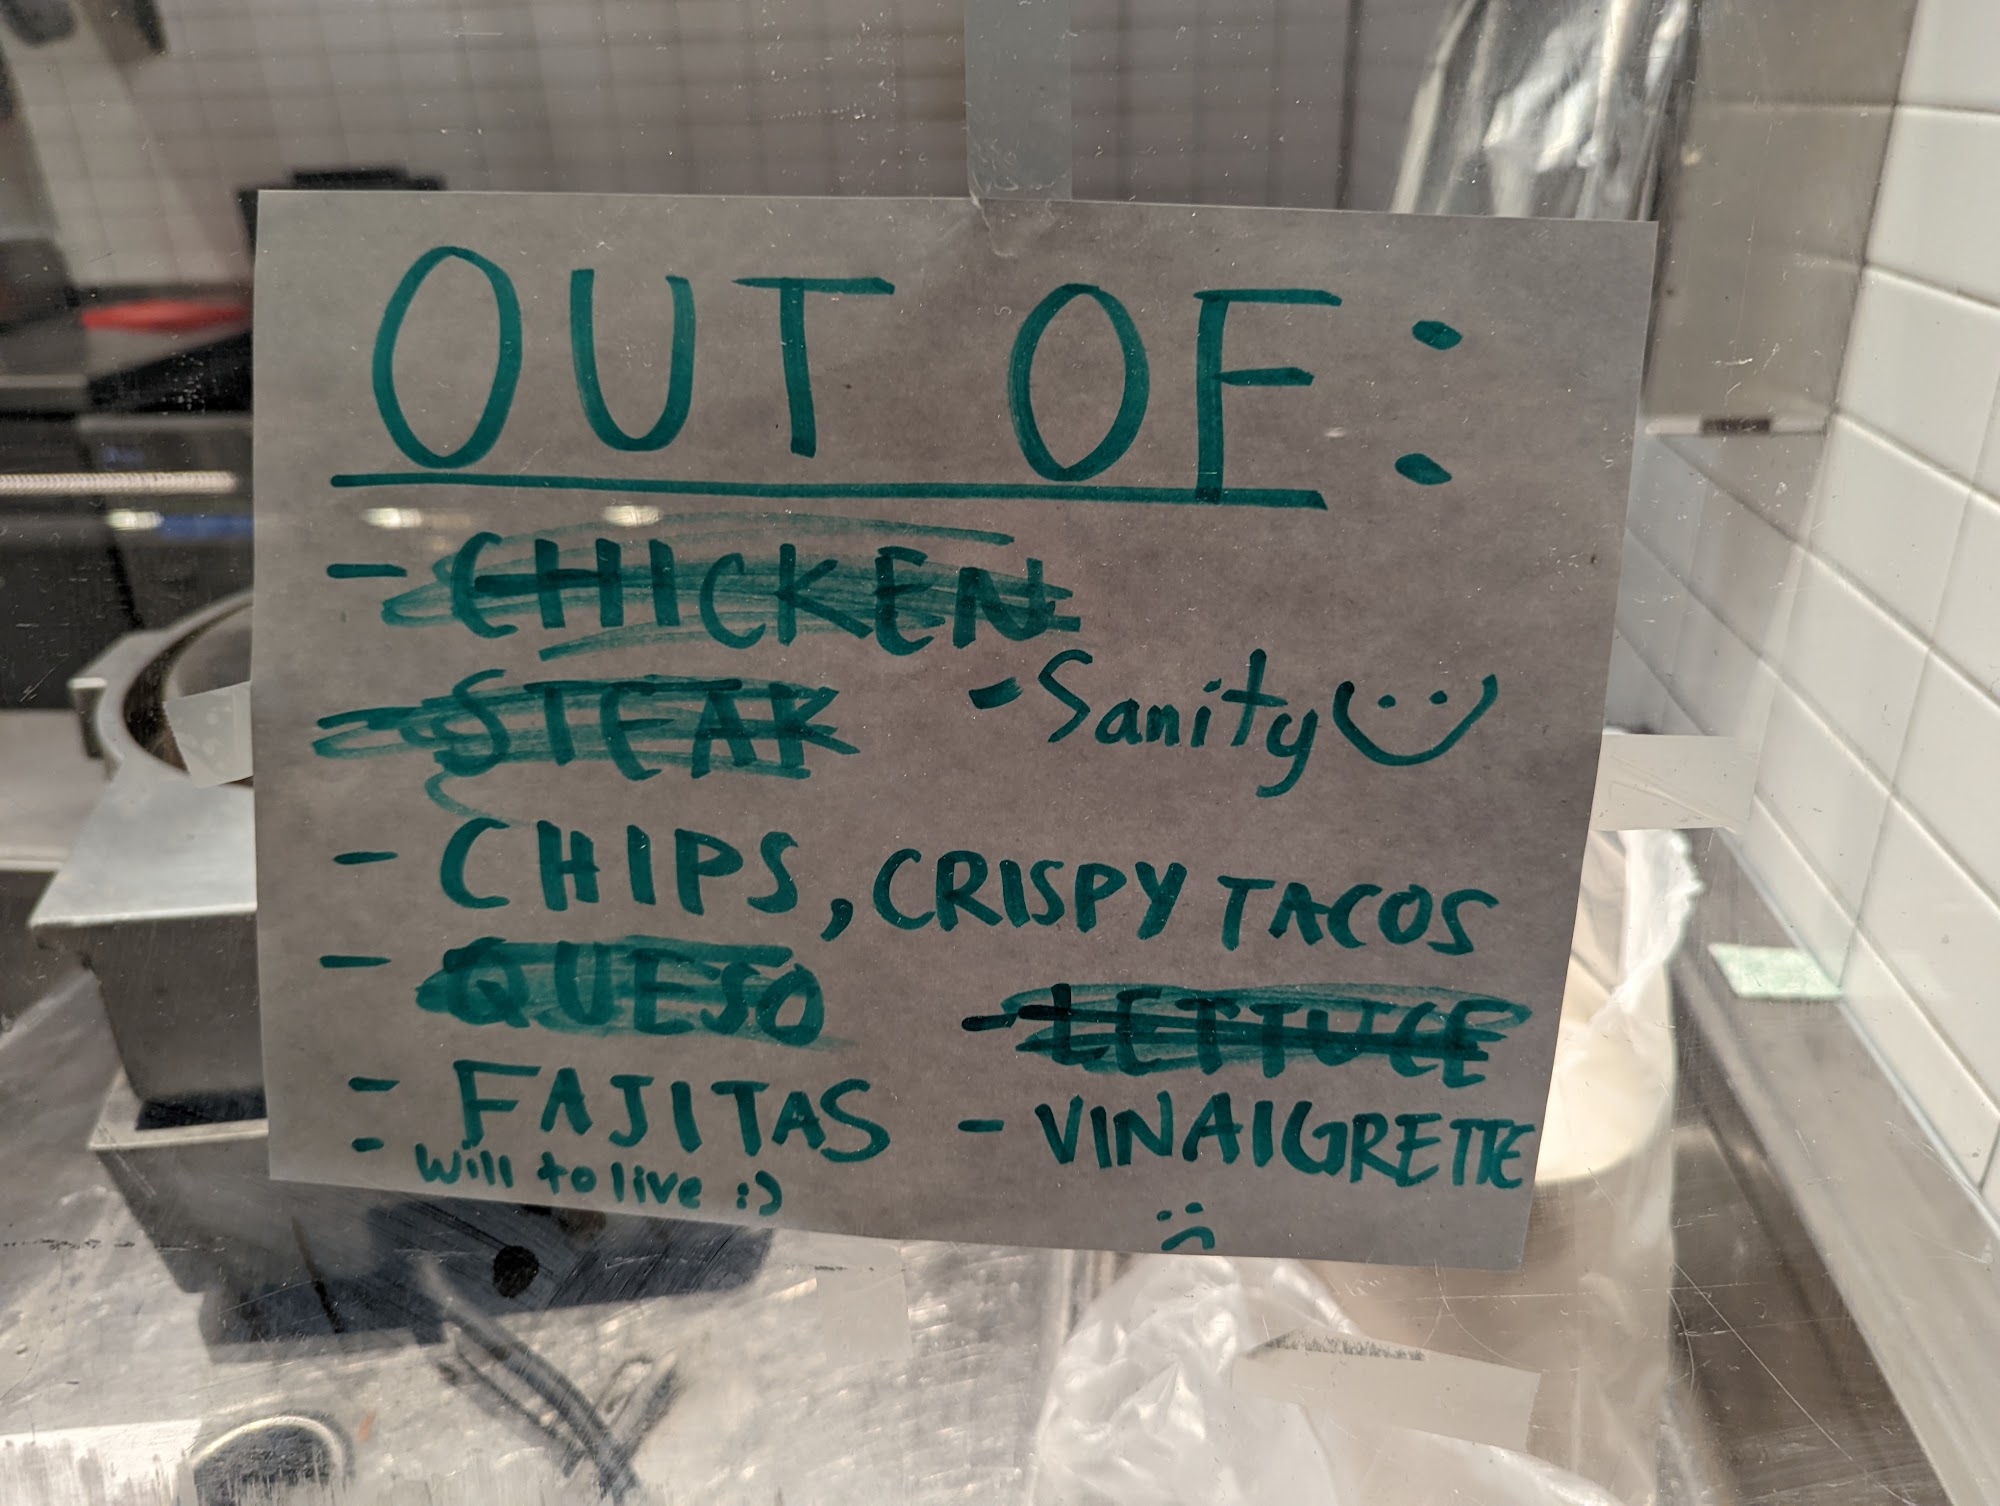 OUT OF:
- CHICKEN
- STEAK
- Sanity
- CHIPS, CRISPY TACOS
- QUESO
- LETTUCE
- FAJITAS
- VINAIGRETTE
- Will to live :)